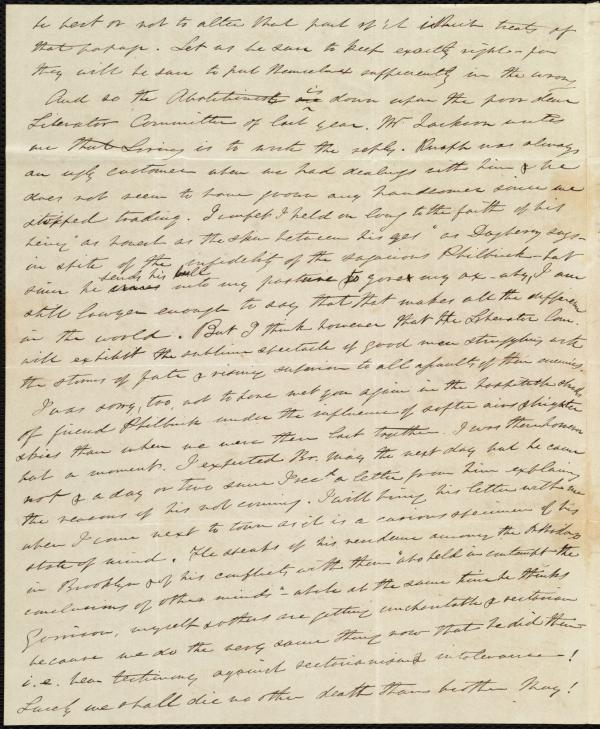 be best or not to alter that part of it which treats of
that papage. Let us be sure to keep exactly right - for
they will be sure to put themselves sufficiently in the wrong
And so the Abolitionist is down upon the poor dear
Liberator Committee of last year. Mr Jackson writes
me that Loring is to write the reply. Knapp was always
an ugly customer when we had dealings with him & he
does not seem to have grown any handsomer since we
stopped trading. I confess I held on long to the faith of his
being "as honest as the skin between his eyes" as Dogberry says -
in spite of the infidelity of the sagacious Philbrick - but
since he sends his bull into my pasture to gore my ox - aby, I am
still lawyer enough to say that that makes all the difference
in the world. But I think however that the Liberator Com.
will exhibit the sublime spectacle of good men struggling with
the storms of fate & rising superior to all assaults of their enemies.
I was sorry, too, not to have met you again in the hospitable shades
of friend Philbrick under the influence of softer airs & brighter
skies than when we were there last together. I was there however
but a moment. I expected Br. May the next day but he came
not & a day or two since I rec'd a letter from him explaining
the reasons of his not coming. I will bring his letter with me
when I come next to town as it is a curious specimen of his
state of mind. He speaks of his residence among the Orthodox
in Brooklyn & of his conflicts with them "who held in contempt the
conclusions of other minds" while at the same time he thinks
Garrison, myself & others are getting uncharitable & sectarian
because we do the very same thing now that he did then -
i.e. bear testimony against sectarianism & intolerance!
Surely we shall die no other death than brother May!